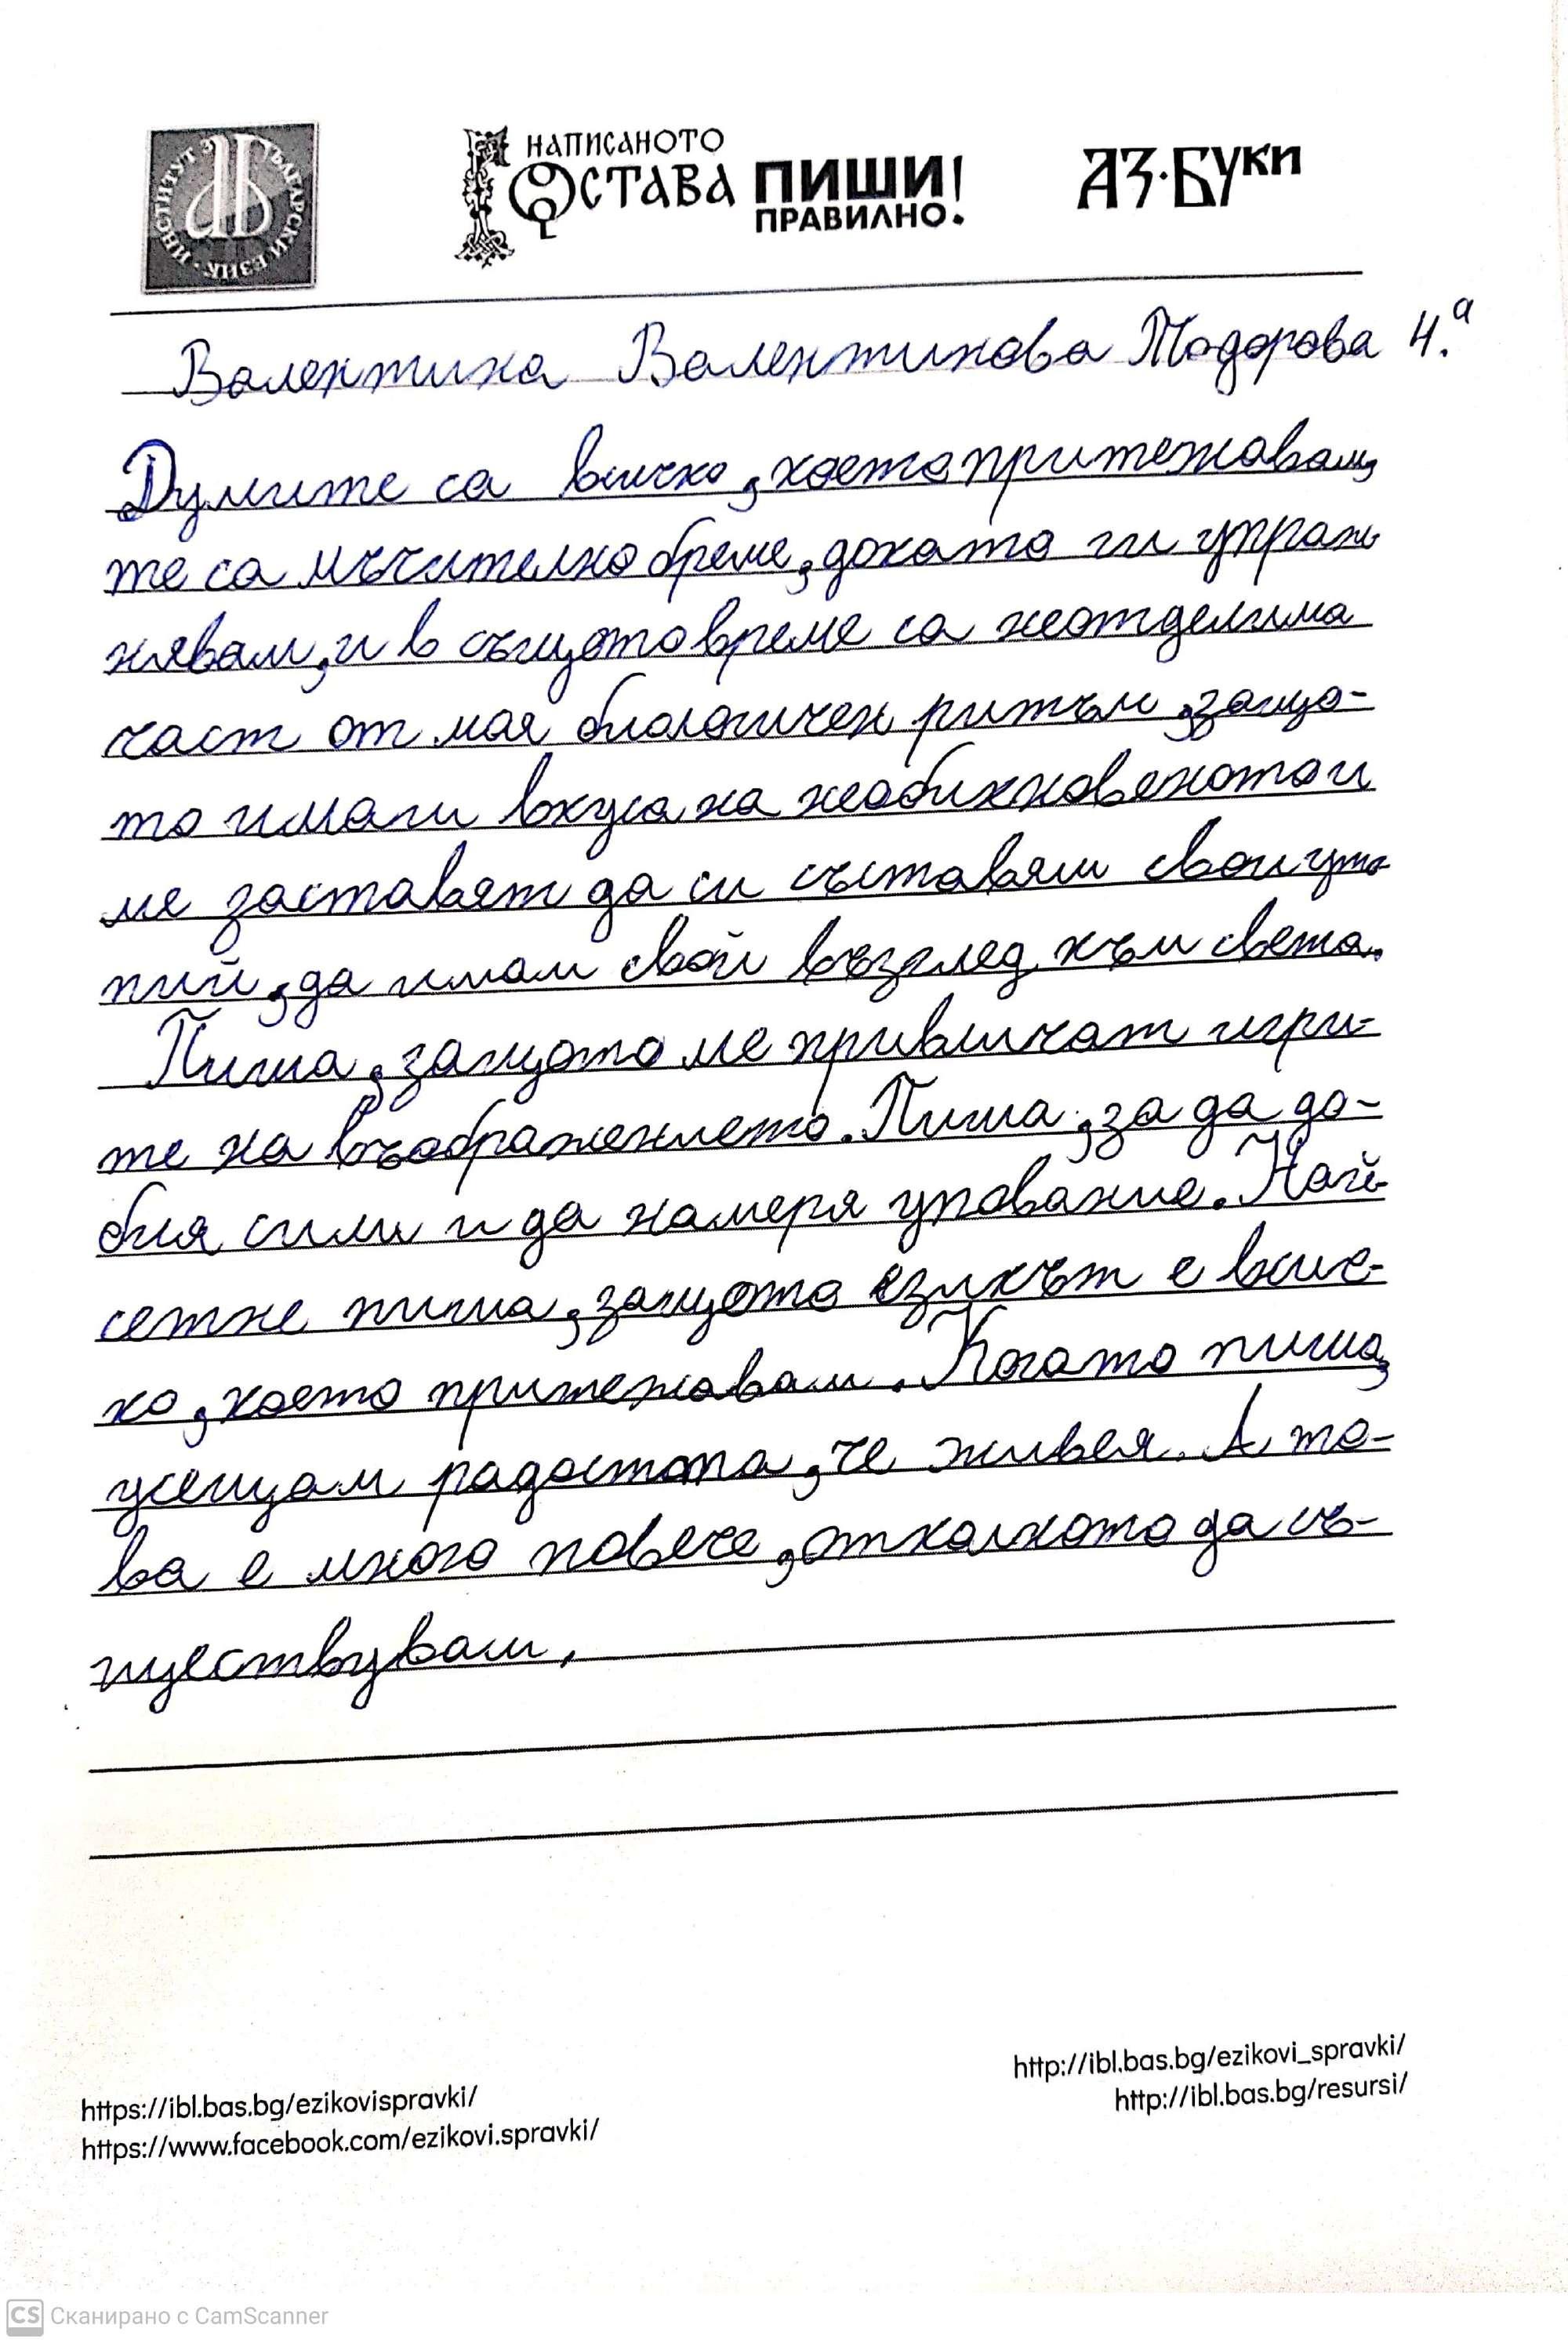 ИНСТИТУТ ЗА БЪЛГАРСКИ ЕЗИК
НАПИСАНОТО
ОСТАВА
ПИШИ!
ПРАВИЛНО.
АЗ·БУКИ
Валентина Валентинова Тодорова 4.а
Думите са всичко, което притежавам,
те са мъчително бреме, докато ги упраж
нявам, и в същото време са неотделима
част от моя биологичен ритъм, защо-
то имат вкуса на необикновеното и
ме заставят да си съставям свои уто
пий, да имам свой възглед към света.
Пиша, защото ме привличат игри-
те на въображението. Пиша, за да до-
бия сили и да намеря упование. Най-
сетне пиша, защото езикът е всич-
ко, което притежавам. Когато пиша,
усещам радостта, че живея. А то-
ва е много повече, отколкото да съ-
ществувам.
https://ibl.bas.bg/ezikovispravki/
https://www.facebook.com/ezikovi.spravki/
http://ibl.bas.bg/ezikovi_spravki/
http://ibl.bas.bg/resursi/
CS Сканирано с CamScanner